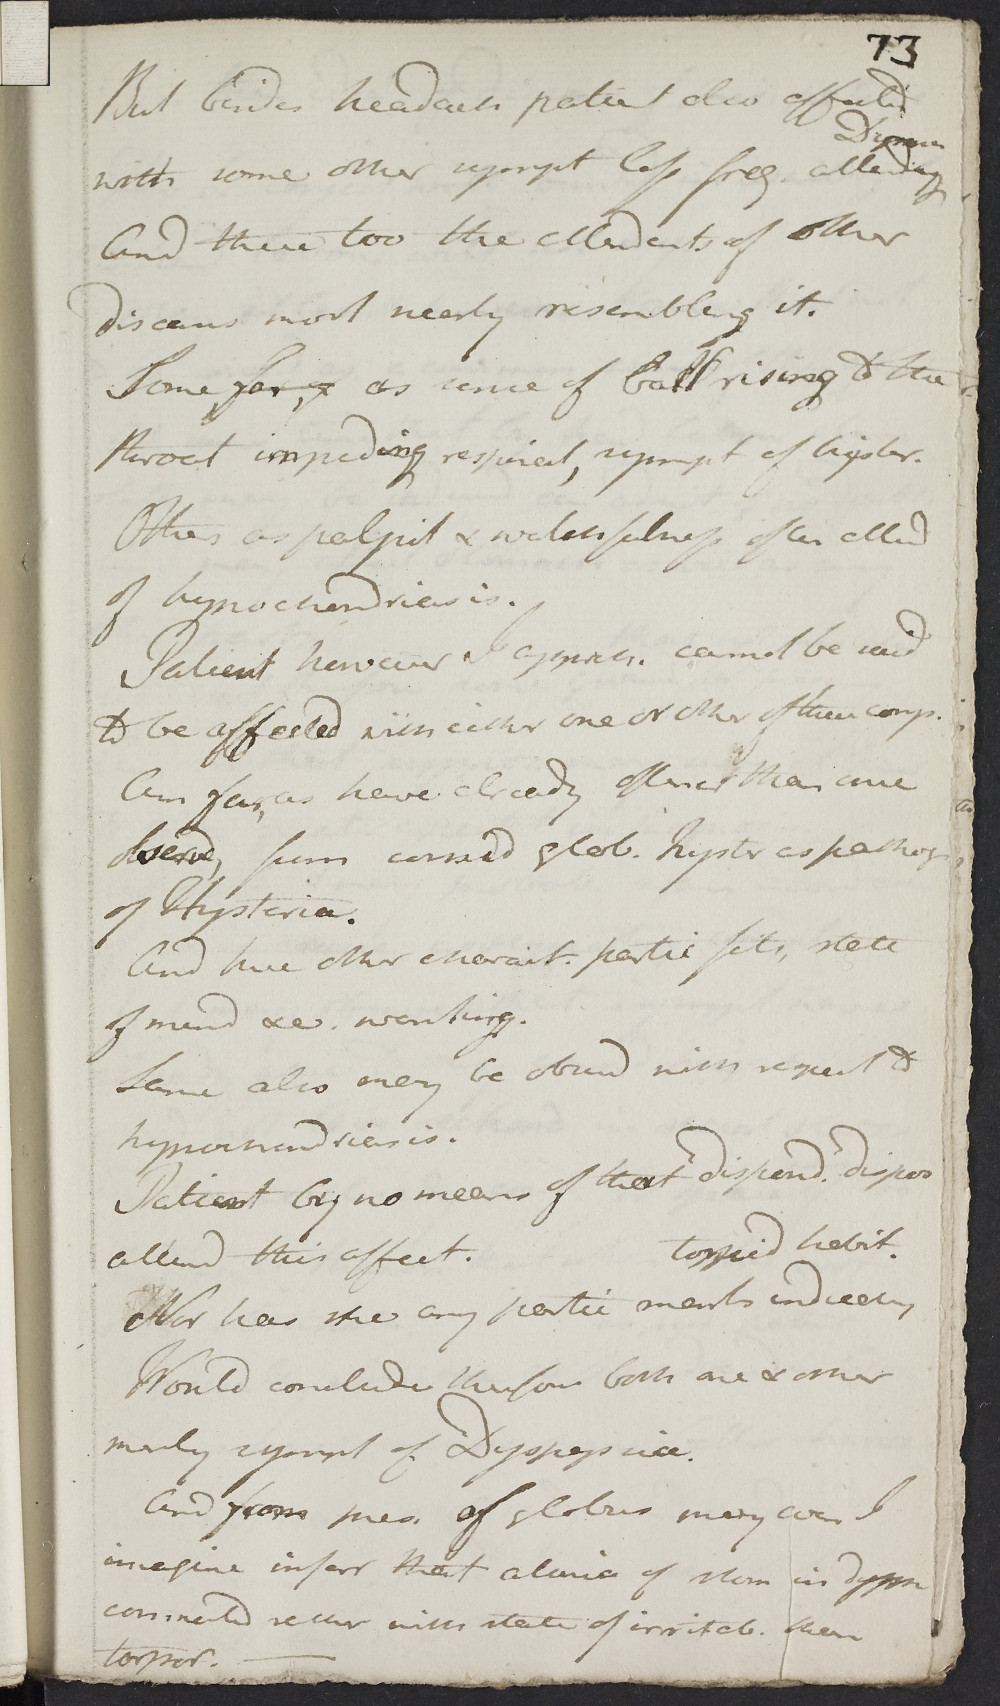 73
But besides headach patient also affected
with some other sympt less freq. attending
Dyspeps
And these too the attendants of other
diseases most nearly resembling it.
Some as sense of Ball rising to the
throat impeding respirat, sympt of hyster.
Others as palpit & watchfulness often attend
of hypochondriasis.
Patient however I appreh. cannot be said
to be affected with either one or other of these comp.
Am far, as have already oftener than once
observed, from consid glob. hyster as pathog
of Hysteria.
And here other charact. partic fits, state
of mind &c. wanting.
Same also may be observd with respect to
hypochondriasis.
Patient by no means of that dispond. dispos
attend this affect. torpid habit.
Nor has she any partic marks indicating
Would conclude therefore both one & other
merely sympt of Dyspepsia.
And from pres. of globus may even I
imagine infer that atonia of stom in dyspe
connected rather with state of irritab. than
torpor.